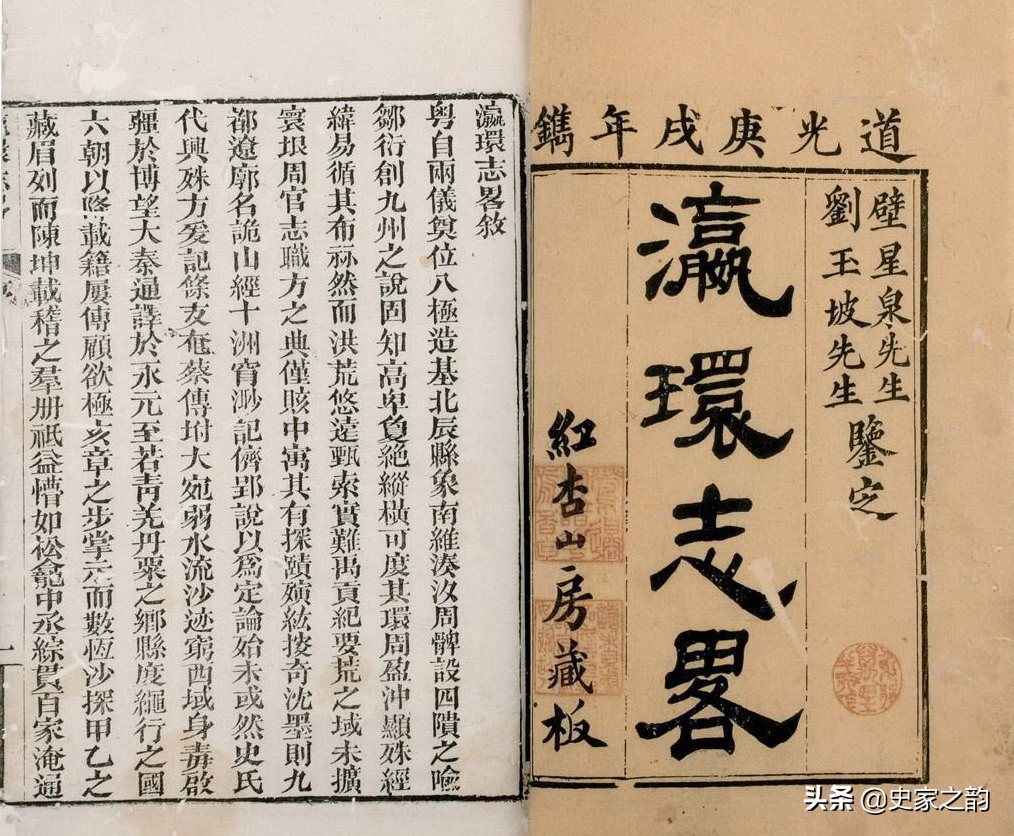 道光庚戌年鐫
壁星泉先生
劉玉坡先生
鑒定
瀛環志畧
紅杏山房藏板
瀛環志畧敘
粵自兩儀奠位八極造基北辰縣象南維湊汝周髀設四隤之喩
鄒衍創九州之說固知高卑夐絕縱橫可度其環周盈沖顯姝經
緯易循其布祘然而洪荒悠遠甄索實難禹貢紀要荒之域未擴
寰垠周官志職方之典僅賅中寓其有探賾殥紘接奇沈墨則九
都遼廓名詭山經十洲窅渺記儕郢說以爲定論始未或然史氏
代興殊方爰記條支奄蔡傳坿大宛弱水流沙迹窮西域身毒啟
疆於博望大秦通譯於永元至若靑羌丹粟之鄉縣度繩行之國
六朝以降載籍屢傳顧欲極亥章之步掌六而數恆沙探甲乙之
藏眉列而陳坤載稽之羣册祇益懵如松龕中丞綜貫百家淹通
頭條 @史家之韵